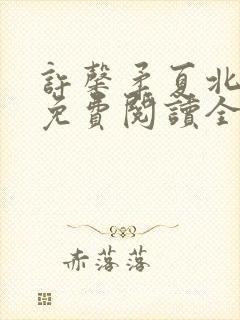 許馨矛夏北
免費閱讀全
赤落落